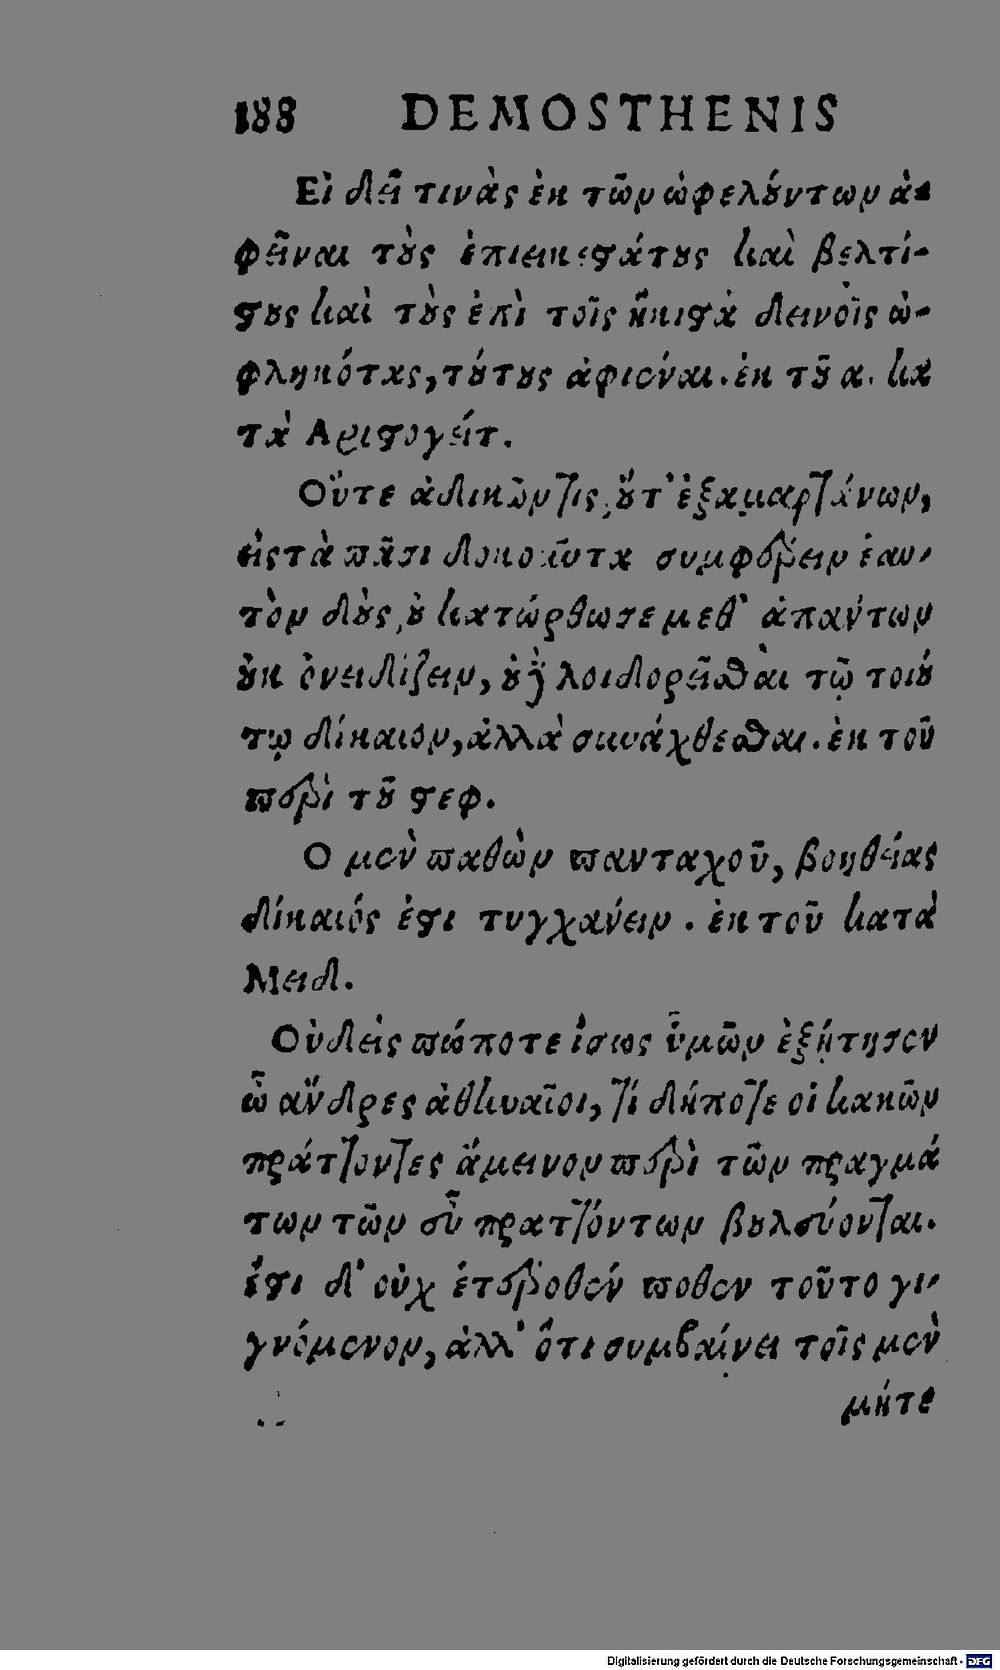 188 DEMOSTHENIS
Εἰ δεῖ τινὰς ἐκ τῶν ὠφελούντων ἀ-
φεῖναι τοὺς ἐπιεικεστάτους καὶ βελτί-
στους καὶ τοὺς ἐπὶ τοῖς ἥκιστα δεινοῖς ὠ-
φληκότας, τούτους ἀφιέναι. ἐκ τοῦ α. κα
τὰ Αριστογείτ.
Οὔτε ἀδικῶν τις, οὔτ' ἐξαμαρτάνων,
εἰς τὰ πᾶσι δοκοῦντα συμφέρειν ἑαυ-
τὸν δοὺς, οὐ κατώρθωσε μεθ' ἁπάντων
οὐκ ὀνειδίζειν, οὐδὲ λοιδορεῖσθαι τῷ τοιού
τῳ δίκαιον, ἀλλὰ συνάχθεσθαι. ἐκ τοῦ
περὶ τοῦ στεφ.
Ο μὲν παθὼν πανταχοῦ, βοηθείας
δίκαιός ἐστι τυγχάνειν. ἐκ τοῦ κατὰ
Μειδ.
Οὐδεὶς πώποτε ἴσως ὑμῶν ἐξήτησεν
ὦ ἄνδρες ἀθηναῖοι, τί δήποτε οἱ κακῶν
πράττοντες ἄμεινον περὶ τῶν πραγμά
των τῶν εὖ πραττόντων βουλεύονται.
ἔστι δ' οὐχ ἑτέρωθεν ποθεν τοῦτο γι-
γνόμενον, ἀλλ' ὅτι συμβαίνει τοῖς μὲν
μήτε
Digitalisierung gefördert durch die Deutsche Forschungsgemeinschaft - DFG